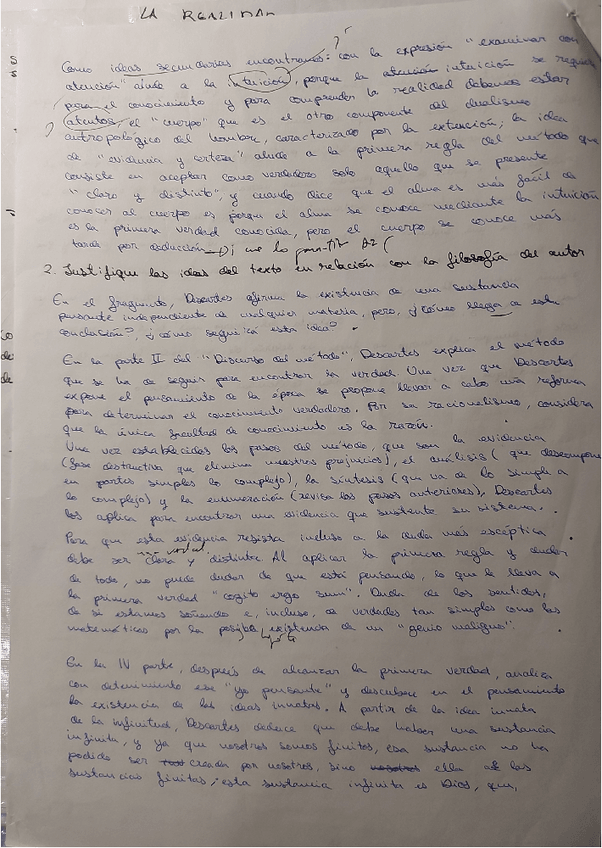 LA REALIDAD
Como ideas secundarias encontramos: con la expresión "examinar con
atención" alude a la intuición, porque la atención intuición se requiere
para el conocimiento y para comprender la realidad debemos estar
atentos, el "cuerpo" que es el otro componente del dualismo
antropológico del hombre, caracterizado por la extensión; la idea
de "evidencia y certeza" alude a la primera regla del método que
consiste en aceptar como verdadero solo aquello que se presente
"claro y distinto", y cuando dice que el alma es más fácil de
conocer al cuerpo es porque el alma se conoce mediante la intuición
es la primera verdad conocida, pero el cuerpo se conoce más
tarde por deducción
2. Justifique las ideas del texto en relación con la filosofía del autor
En el fragmento, Descartes afirma la existencia de una sustancia
pensante independiente de cualquier materia, pero, ¿cómo llega a esta
conclusión?, ¿cómo seguirá esta idea?
En la parte II del "Discurso del método", Descartes explica el método
que se ha de seguir para encontrar la verdad. Una vez que Descartes
expone el pensamiento de la época se propone llevar a cabo una reforma
para determinar el conocimiento verdadero. Por su racionalismo, considera
que la única facultad de conocimiento es la razón.
Una vez establecidos los pasos del método, que son la evidencia
(fase destructiva que elimina nuestros prejuicios), el análisis (que descompone
en partes simples lo complejo), la síntesis (que va de lo simple a
lo complejo) y la enumeración (revisa los pasos anteriores), Descartes
los aplica para encontrar una evidencia que sustente su sistema.
Para que esta evidencia resista incluso a la duda más escéptica
debe ser clara y distinta. Al aplicar la primera regla y dudar
de todo, no puede dudar de que está pensando, lo que le lleva a
la primera verdad "cogito ergo sum". Duda de los sentidos,
de si estamos soñando e, incluso, de verdades tan simples como las
matemáticas por la posible existencia de un "genio maligno".
En la IV parte, después de alcanzar la primera verdad, analiza
con detenimiento ese "yo pensante" y descubre en el pensamiento
la existencia de las ideas innatas. A partir de la idea innata
de la infinitud, Descartes deduce que debe haber una sustancia
infinita, y ya que nosotros somos finitos, esa sustancia no ha
podido ser creada por nosotros, sino nosotros ella a las
sustancias finitas; esta sustancia infinita es Dios, que,